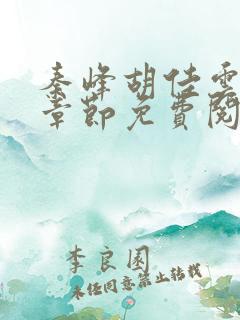 秦峰胡佳雲
章節免費閱
李良園
未经同意禁止转载